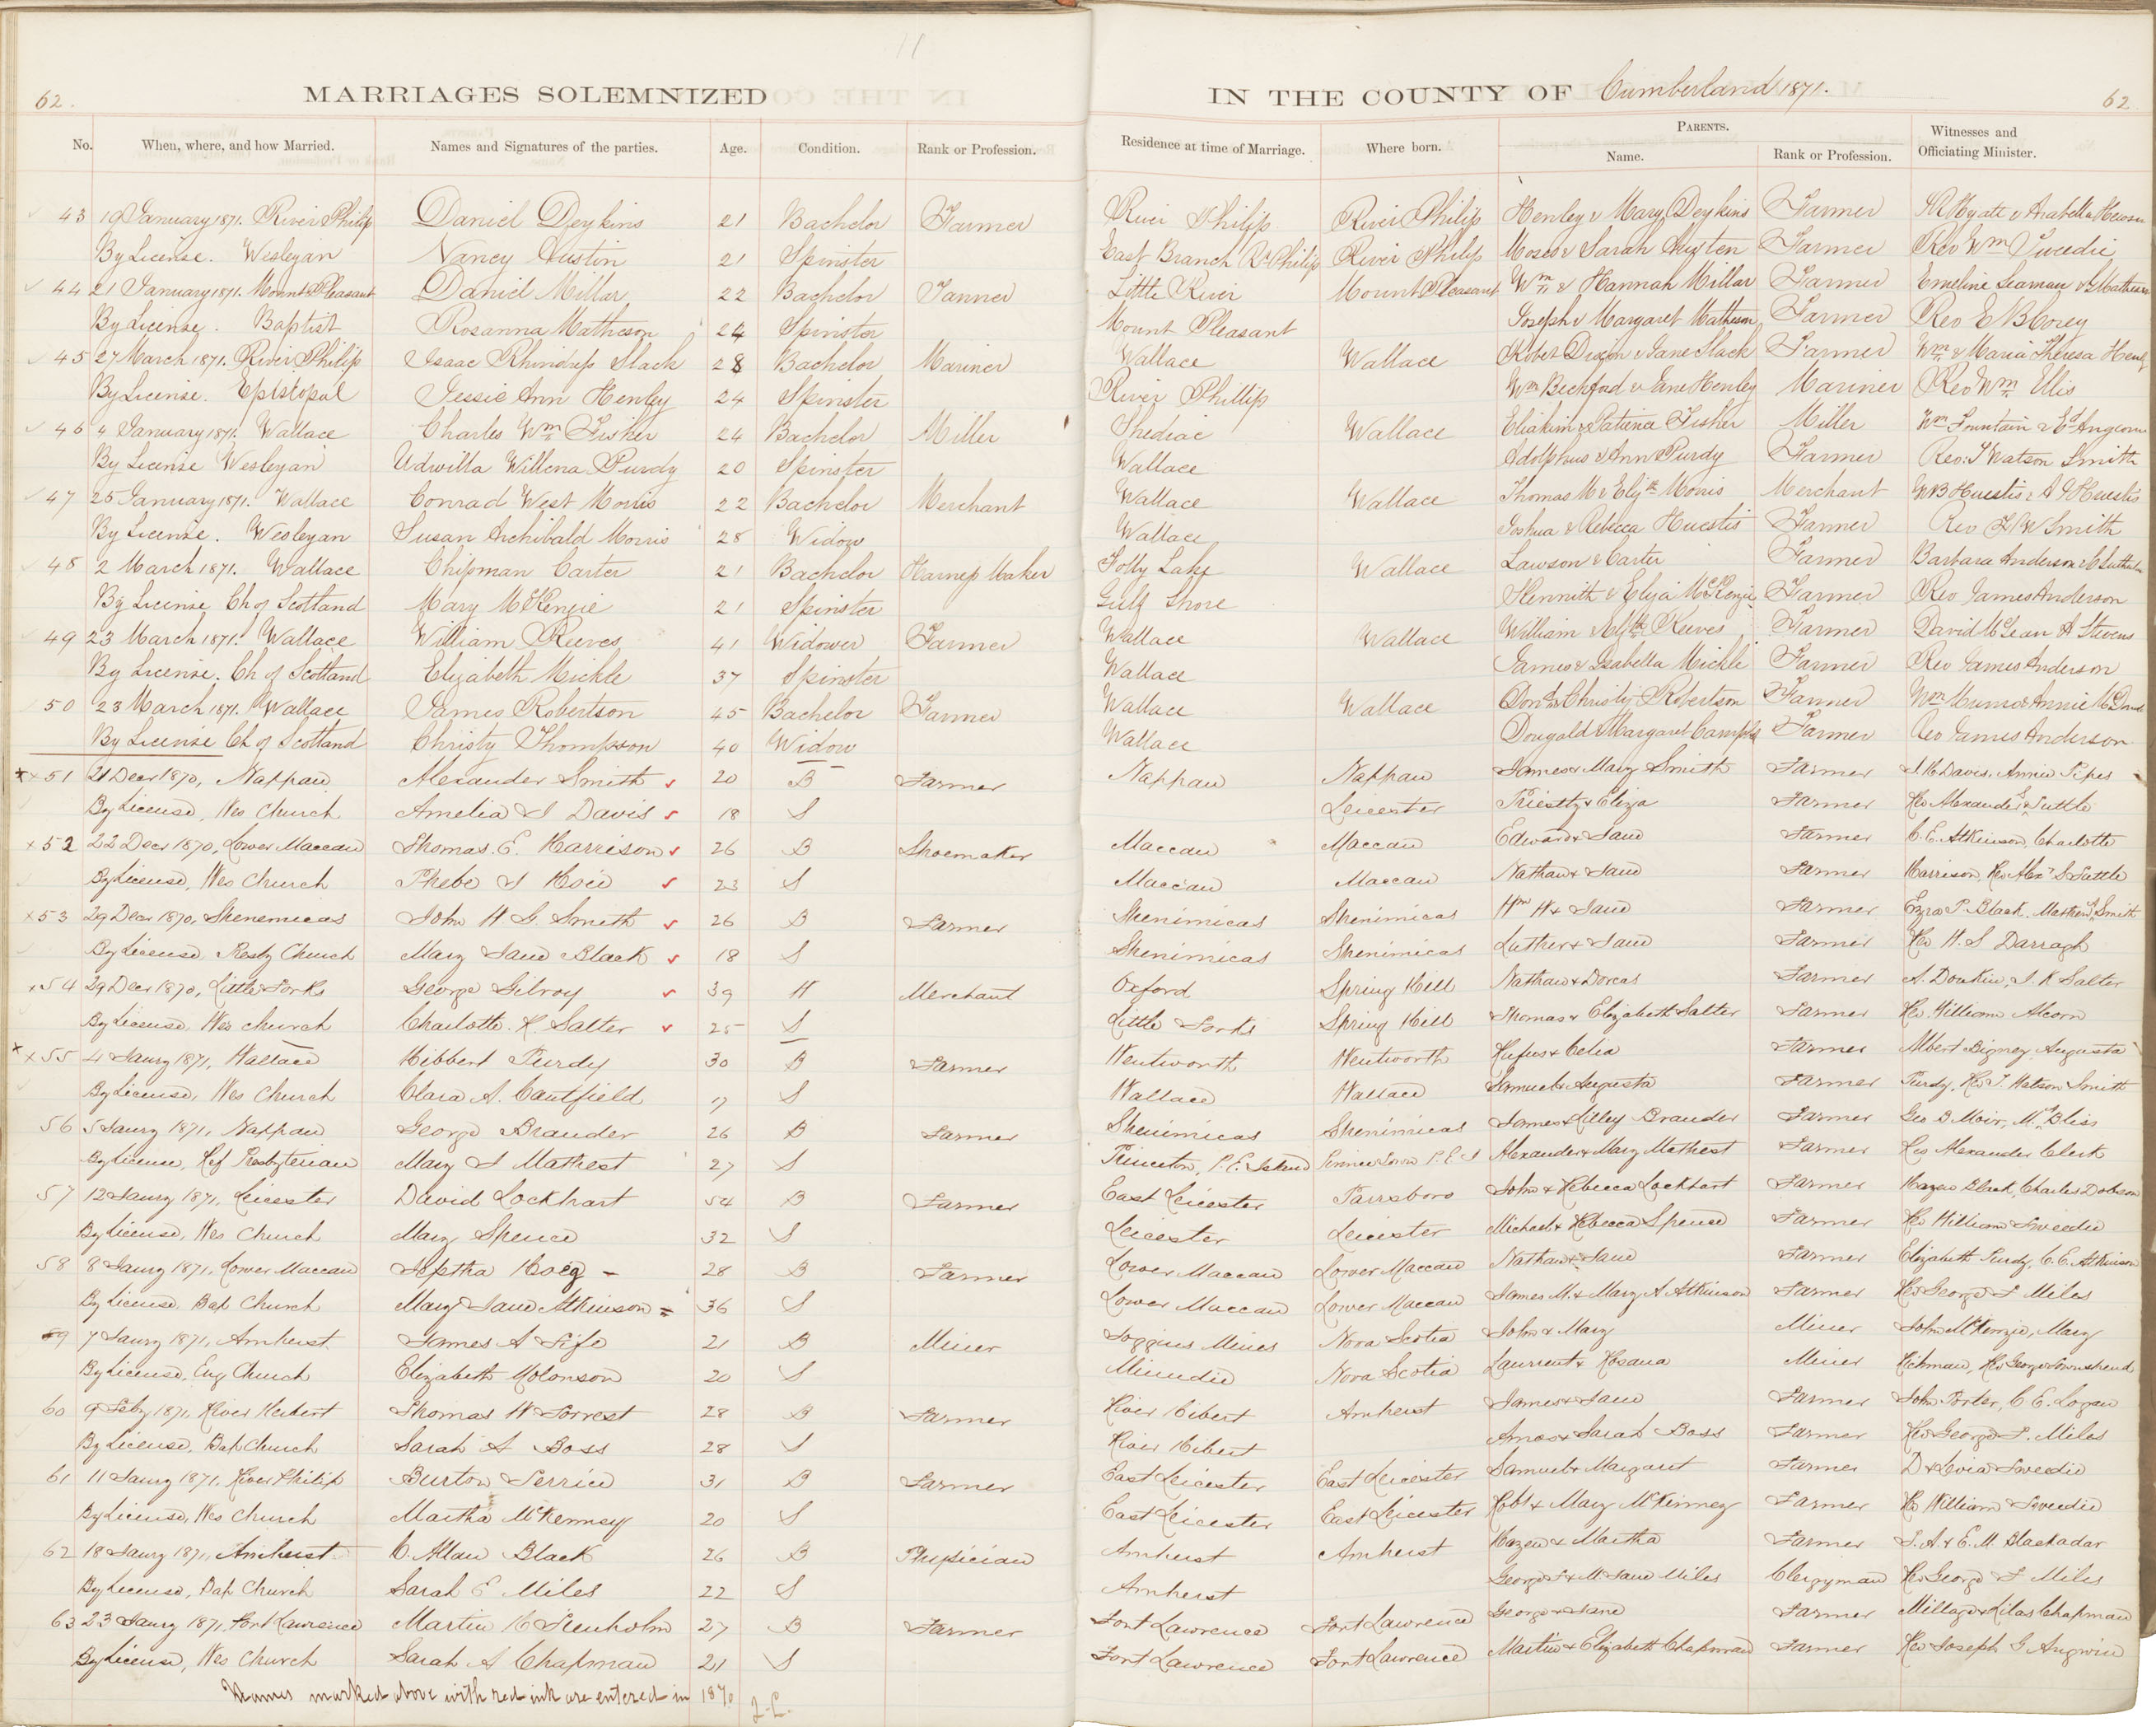 11
62.
MARRIAGES SOLEMNIZED
IN THE COUNTY OF Cumberland 1871.
62
No. When, where, and how Married. Names and Signatures of the parties. Age. Condition. Rank or Profession. Residence at time of Marriage. Where born. PARENTS. Name. Rank or Profession. Witnesses and Officiating Minister.
43 19 January 1871. River Philip Daniel Deykins 21 Bachelor Farmer River Philip River Philip Henley & Mary Deykins Farmer Hyatt & Arabella Hewson
By License. Wesleyan Nancy Austin 21 Spinster East Branch R Philip River Philip Moses & Sarah Austen Farmer Rev Wm Tweedie
44 21 January 1871. Mount Pleasant Daniel Millar 22 Bachelor Farmer Little River Mount Pleasant Wm & Hannah Millar Farmer Emeline Seaman & Matheson
By License. Baptist Rosanna Matheson 24 Spinster Mount Pleasant Joseph & Margaret Matheson Farmer Rev E B Corey
45 27 March 1871. River Philip Isaac Slack 28 Bachelor Mariner Wallace Wallace Robert Dixon & Jane Slack Farmer Wm & Maria Theresa
By License. Episcopal Jessie Ann Henley 24 Spinster River Phillip Wm Beckford & Jane Henley Mariner Rev Wm Ellis
46 4 January 1871. Wallace Charles Wm Fisher 24 Bachelor Miller Shediac Wallace Eliakim & Patience Fisher Miller Wm Fountain &
By License Wesleyan Udwilla Willena Purdy 20 Spinster Wallace Adolphus & Ann Purdy Farmer Rev. T Watson Smith
47 25 January 1871. Wallace Conrad West Morris 22 Bachelor Merchant Wallace Wallace Thomas M & Elizth Morris Merchant W B Huestis & A G Huestis
By License. Wesleyan Susan Archibald Morris 28 Widow Wallace Joshua & Rebecca Huestis Farmer Rev T W Smith
48 2 March 1871. Wallace Chipman Carter 21 Bachelor Harness Maker Folly Lake Wallace Lawson & Carter Farmer Barbara Anderson &
By License Ch of Scotland Mary McKenzie 21 Spinster Gulf Shore Kennith & Eliza McKenzie Farmer Rev James Anderson
49 23 March 1871. Wallace William Reeves 41 Widower Farmer Wallace Wallace William & Reeves Farmer David McLean A Stevens
By License. Ch of Scotland Elizabeth Mickle 37 Spinster Wallace James & Isabella Mickle Farmer Rev James Anderson
50 23 March 1871. Wallace James Robertson 45 Bachelor Farmer Wallace Wallace & Christy Robertson Farmer Wm Munro & Annie
By License Ch of Scotland Christy Thompson 40 Widow Wallace Dougald & Margaret Farmer Rev James Anderson
x x 51 21 Decr 1870, Nappan Alexander Smith 20 B Farmer Nappan Nappan James & Mary Smith Farmer Davis, Annie Pipes
By License, Wes Church Amelia J Davis 18 S Leicester & Eliza Farmer Rev Alexander S Tuttle
x 52 22 Decr 1870, Lower Maccan Thomas. E. Harrison 26 B Shoemaker Maccan Maccan Edward & Jane Farmer C. E. Atkinson, Charlotte
By License, Wes Church Phebe J Hoeg 23 S Maccan Maccan Nathan & Jane Farmer Harrison, Rev Alexr S Tuttle
x 53 29 Decr 1870, Shenemicas John W G. Smith 26 B Farmer Shenimicas Shenimicas Wm W & Jane Farmer Ezra P. Black. Smith
By License Presby Church Mary Jane Black 18 S Shenimicas Shenimicas Luther & Jane Farmer Rev W. S Darragh
x 54 29 Decr 1870, Little Forks George Gilroy 39 W Merchant Oxford Spring Hill Nathan & Dorcas Farmer A. Donkin, J. R Salter
By License, Wes church Charlotte. R. Salter 25 S Little Forks Spring Hill Thomas & Elizabeth Salter Farmer Rev. William Alcorn
x x 55 4 Jany 1871, Wallace Hibbert Purdy 30 B Farmer Wentworth Wentworth Rufus & Celia Farmer Albert Bigney Augusta
By License, Wes Church Clara A. Cantfield 17 S Wallace Wallace Samuel & Augusta Farmer Purdy, Rev T. Watson Smith
56 5 Jany 1871, Nappan George Brander 26 B Farmer Shenimicas Shenimicas James & Lilley Brander Farmer Geo D Moir, Bliss
By License, Ref Presbyterian Mary J Mathest 27 S Princeton, P. E. Island P. E. I Alexander & Mary Mathest Farmer Rev Alexander Clark
57 12 Jany 1871, Leicester David Lockhart 54 B Farmer East Leicester Parrsboro John & Rebecca Lockhart Farmer Black, Charles Dobson
By License, Wes Church Mary Spence 32 S Leicester Leicester Michael & Rebecca Spence Farmer Rev William Tweedie
58 8 Jany 1871, Lower Maccan Jeptha Hoeg 28 B Farmer Lower Maccan Lower Maccan Nathan & Jane Farmer Elizabeth Purdy, C. E. Atkinson
By License, Bap Church Mary Jane Atkinson 36 S Lower Maccan Lower Maccan James M. & Mary A Atkinson Farmer Rev George F Miles
59 7 Jany 1871, Amherst James A Fife 21 B Miner Joggins Mines Nova Scotia John & Mary Miner John McKenzie, Mary
By License, Eng Church Elizabeth Molonson 20 S Minudie Nova Scotia Laurient & Rosana Miner Hickman, Rev George Townshend
60 9 Feby 1871, River Herbert Thomas W Forrest 28 B Farmer River Hibert Amherst James & Jane Farmer John Porter, C E. Logan
By License, Bap Church Sarah A Boss 28 S River Hibert Amos & Sarah Boss Farmer Rev George F. Miles
61 11 Jany 1871. River Philip Burton Perrice 31 B Farmer East Leicester East Leicester Samuel & Margaret Farmer D & Levia Tweedie
By License, Wes Church Martha McKenney 20 S East Leicester East Leicester Robt & Mary McKinney Farmer Rev William Tweedie
62 18 Jany 1871, Amherst C. Allan Black 26 B Physician Amherst Amherst Hazen & Martha Farmer S. A. & E. M. Blackadar
By License, Bap Church Sarah E Miles 22 S Amherst George F & M. Jane Miles Clergyman Rev George F Miles
63 23 Jany 1871, Fort Lawrence Martin H Trenholm 27 B Farmer Fort Lawrence Fort Lawrence George & Jane Farmer Millage & Silas Chapman
By License, Wes Church Sarah A Chapman 21 S Fort Lawrence Fort Lawrence Martin & Elizabeth Chapman Farmer Rev Joseph G Angwin
Names marked above with red ink are entered in 1870